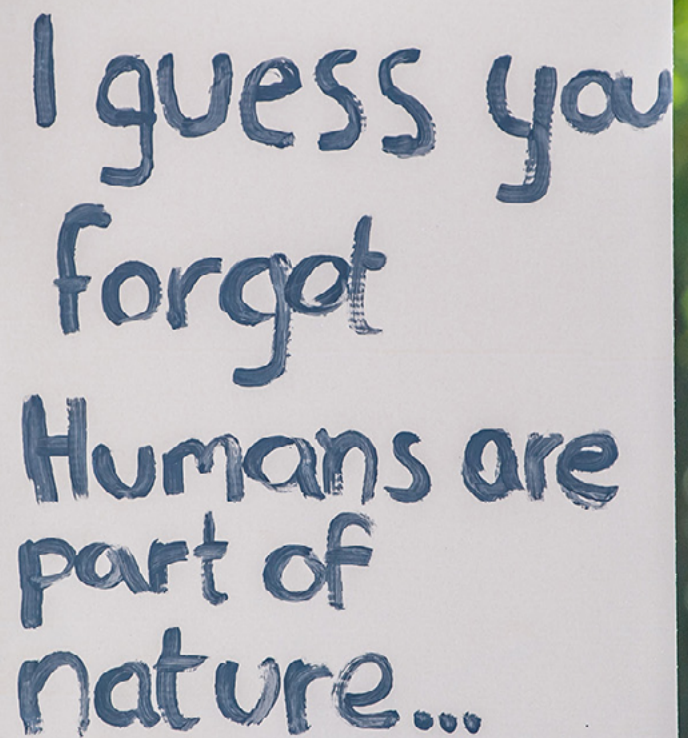 I guess you
forgot
Humans are
part of
nature...